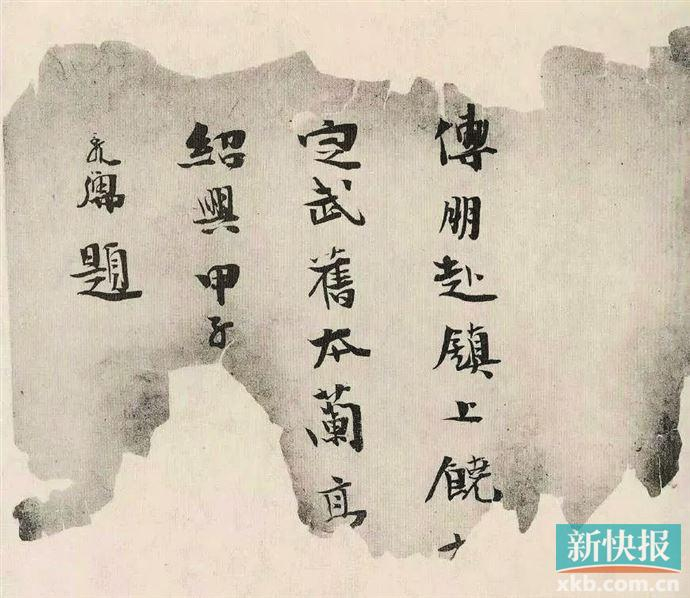 傅朋赴鎮上饒
定武舊本蘭
紹興甲子
題
新快报
xkb.com.cn